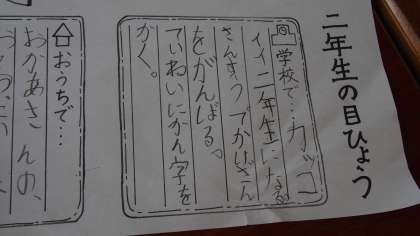 二年生の目ひょう
学校で…カッコ
イイ二年生になる
さんすうでかけざん
をがんばる。
ていねいにかん字を
かく。
おうちで…
おかあさんの、